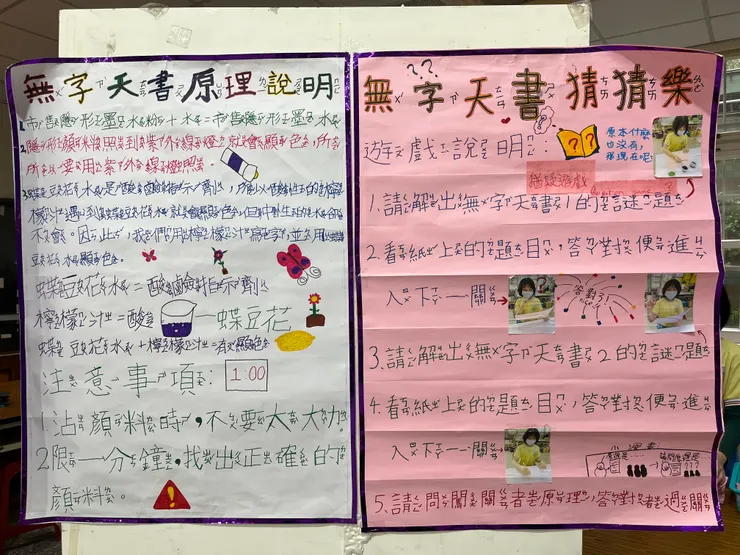 無字天書原理說明
1.市售隱形墨水粉+水=市售隱形墨水
2.隱形顏水沒照到紫外線燈就會顯色,所
所以要用紫外線燈照
3.蝶豆花水是酸鹼指示劑,所以
檸檬汁遇到蝶豆花水就會顯色,但中性的水
不會。因此,我們用檸檬汁寫字,並用蝶
豆花水顯色。
蝶豆花水=酸鹼指示劑
檸檬汁=酸
蝶豆花
蝶豆花水+檸檬汁=有顯色
注意事項:
1:00
1.沾顏料時,不要太大力。
2.限一分鐘,找出正確的
顏料。
無字天書猜猜樂
??
遊戲說明:
??
原本什麼
也沒有,
猜疑遊戲
1.請解出無字天書1的謎題
2.看紙上的題目,答對便進
入下一關
答對了!
3.請解出無字天書2的謎題
4.看紙上的題目,答對便進
入下一關
5.請問闖關者原理,答對者過關